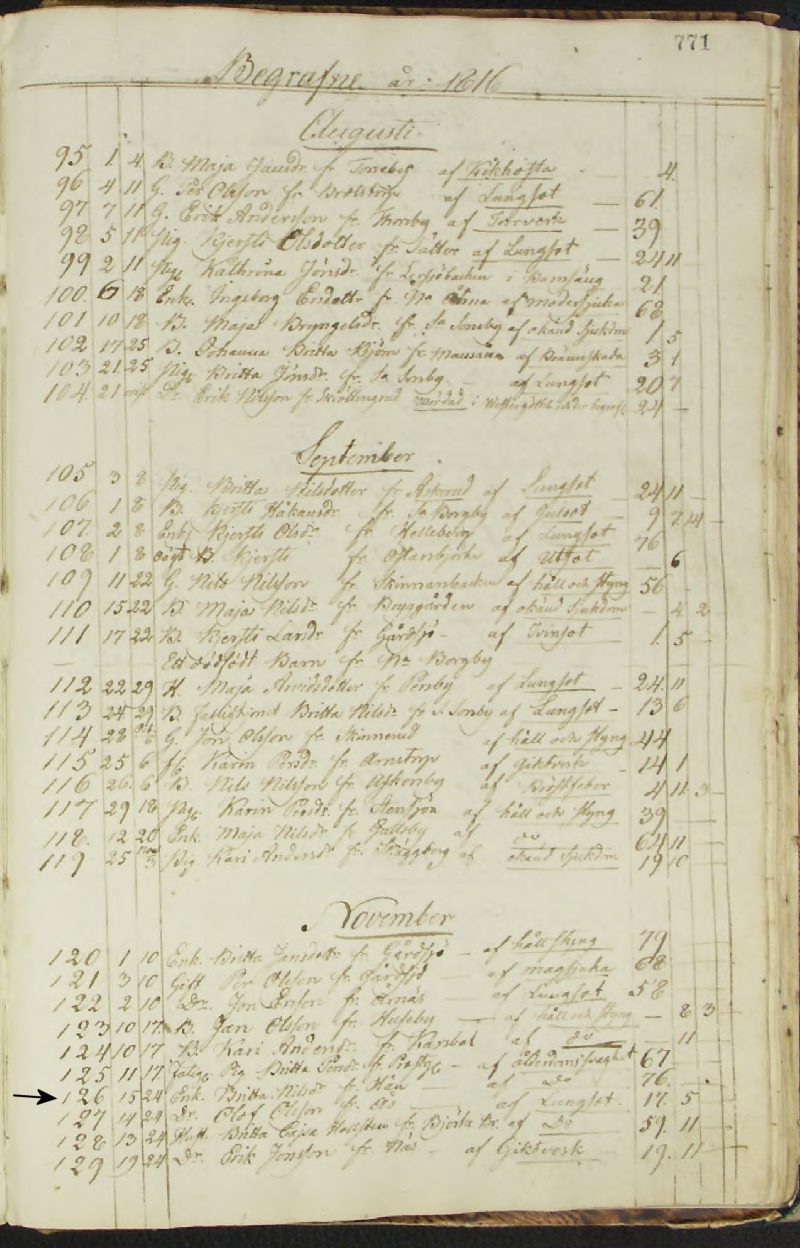 771
Begrafne år 1816
Augusti
95 1 4 B. Maja Jansdr fr Toneby af Kikhosta 4
96 4 11 G. Per Olsson fr af Lungsot 61
97 7 11 G. Erik Andersson fr Thorsby af Torrverk 39
98 5 11 Pig. Kjersti Olsdotter fr Sätter af Lungsot 24 11
99 2 11 Pig. Kathrina Jönsdr fr i Barnsäng 21
100 6 18 Enk. Ingeborg Ersdottr fr Na af modersjuka 68
101 10 18 B. Maja Bryngelsdr fr Sa Sonsby af okänd Sjukdm 1 5
102 17 25 B. Johanna Britta Björn fr af Brännskada 3 1
103 21 25 Pig. Britta Jönsdr fr Sa Sonby af Lungsot 20 7
104 21 Dr. Erik Nilsson fr Mördad i 24
September
105 3 8 Pig. Britta Nilsdotter fr Askerud af Lungsot 24 11
106 1 8 B. Kjersti Håkansdr fr Sa Borgby af Gulsot 9 7 14
107 2 8 Enk. Kjersti Olsdr fr Helleberg af Lungsot 76
108 1 8 oägt B. Kjersti fr Östanbjörke af Utsot 6
109 11 22 G. Nils Nilsson fr Skinnarbacken af håll och Styng 56
110 15 22 B. Maja Nilsdr fr Bryggården af okänd Sjukdm 4 2
111 17 22 B. Kersti Larsdr fr Gårdsjö af Tvinsot 1 5
Ett dödfödt Barn fr Na Borgby
112 22 29 H. Maja Arvidsdotter fr Persby af Lungsot 24 11
113 24 29 B. fattighjonet Britta Nilsdr fr S Sonby af Lungsot 13 6
114 28 6 G. Jon Olsson fr Skinnerud af håll och Styng 44
115 25 6 fl. Karin Persdr fr Arnstorp af Giktverk 14 1
116 26 6 B. Nils Nilsson fr Askersby af Bröstfeber 4 11 3
117 29 18 Pig. Karin Persdr fr Stensjön af håll och Styng 39
118 12 20 Enk. Maja Nilsdr fr Gallsby af do 64 11
119 25 3 Pig Kari Andersdr fr Skäggberg af okänd Sjukdm 19 10
November
120 1 10 Enk. Britta Jansdottr fr Gårdsjö af håll Styng 79
121 3 10 Gift Per Olsson fr Gårdsjö af magsjuka 68
122 2 10 Dr. Jon Ersson fr Arnäs af Lungsot 58
123 10 17 B. Jan Olsson fr Huseby af håll och Styng 8 3
124 10 17 B. Kari Andersdr fr Karsbol af do 11
125 11 17 Pig. Britta Jönsdr fr af ålderdomssvaghet 67
126 15 24 Enk. Britta Nilsdr fr Hån af Do 76
127 14 24 Dr. Olof Olsson fr Ås af Lungsot 17 5
128 13 24 Britta Cajsa Hellsten fr Björka Br. af Do 59 11
129 19 24 Dr. Erik Jonsson fr Näs af Giktverk 19 11